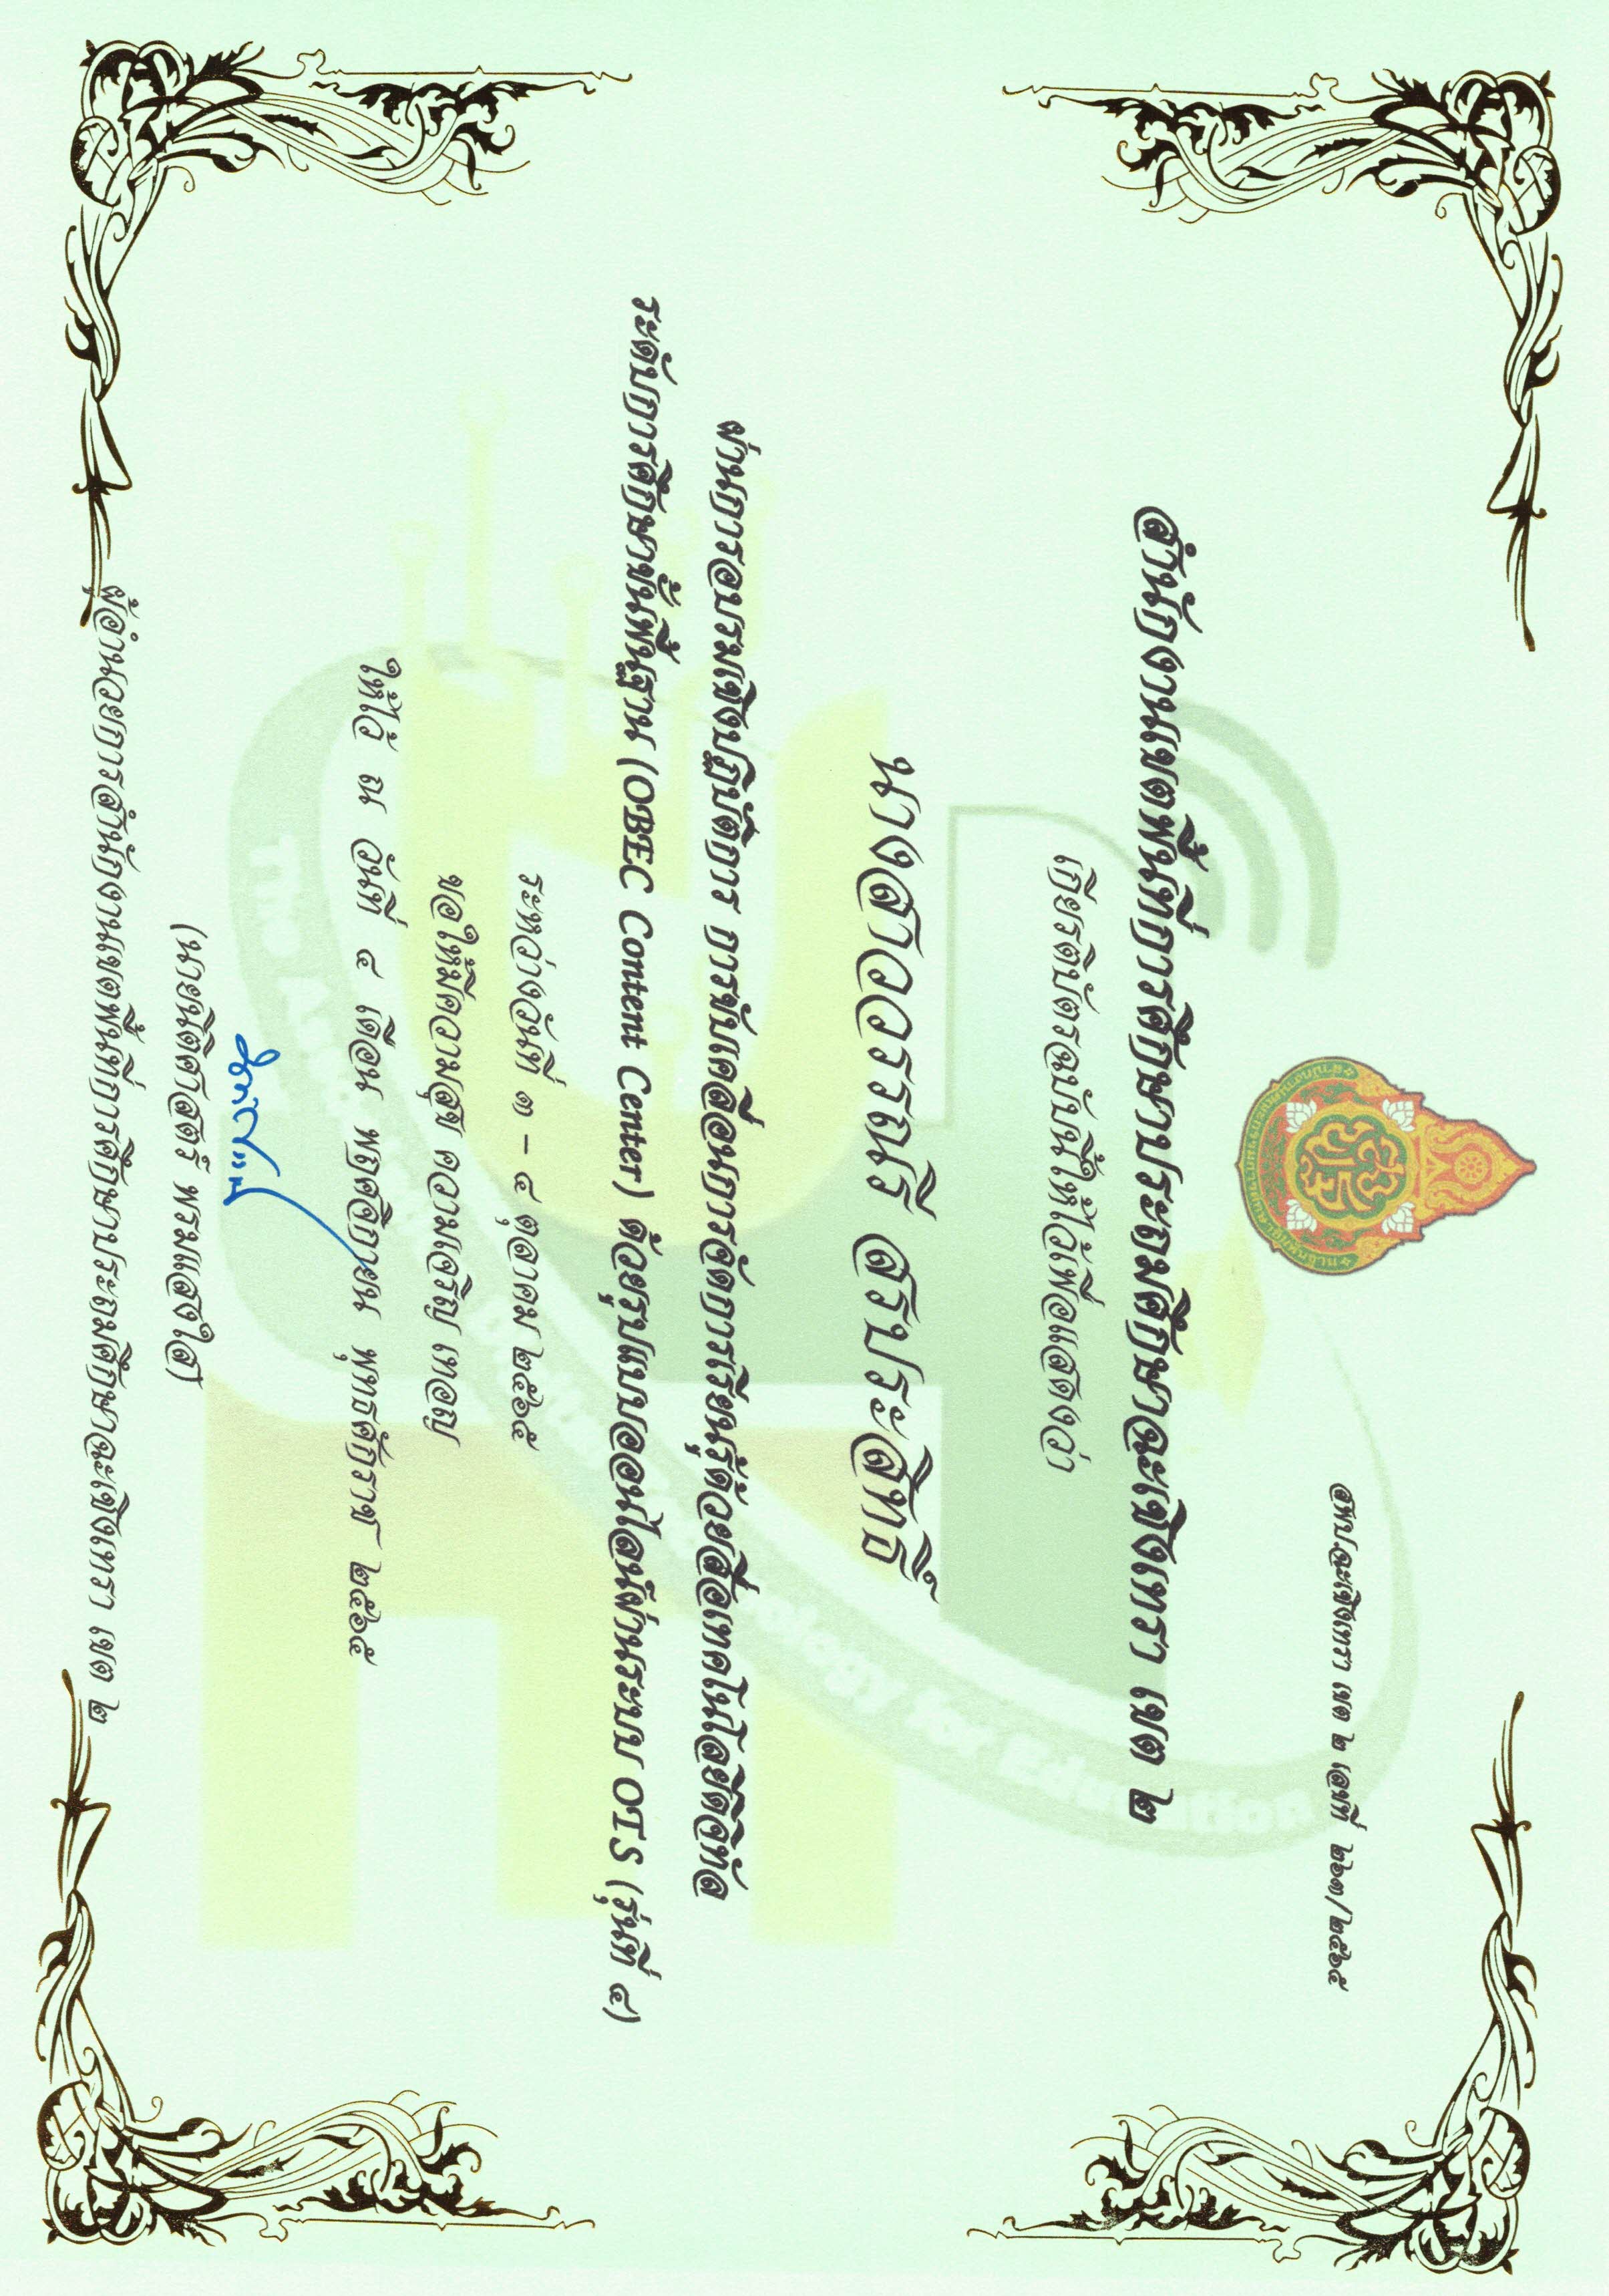 สพป.ฉะเชิงเทรา เขต ๒ เลขที่ ๒๖๓/๒๕๖๕
สำนักงานเขตพื้นที่การศึกษาประถมศึกษาฉะเชิงเทรา เขต ๒
เกียรติบัตรฉบับนี้ให้ไว้เพื่อแสดงว่า
นางสาววรรณรี สรประสิทธิ์
ผ่านการอบรมเชิงปฏิบัติการ การขับเคลื่อนการจัดการเรียนรู้ด้วยสื่อเทคโนโลยีดิจิทัล
ระดับการศึกษาขั้นพื้นฐาน (OBEC Content Center) ด้วยรูปแบบออนไลน์ผ่านระบบ OTS (รุ่นที่ ๔)
ระหว่างวันที่ ๓ - ๔ ตุลาคม ๒๕๖๕
ขอให้มีความสุข ความเจริญ เทอญ
ให้ไว้ ณ วันที่ ๔ เดือน พฤศจิกายน พุทธศักราช ๒๕๖๕
(นายนิติศาสตร์ พรมแสงใส)
ผู้อำนวยการสำนักงานเขตพื้นที่การศึกษาประถมศึกษาฉะเชิงเทรา เขต ๒